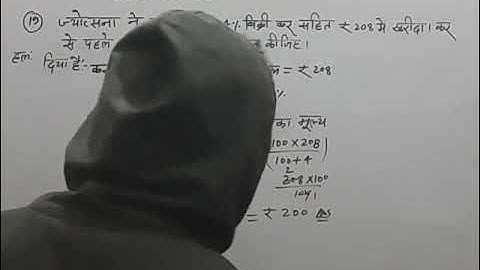 (19) ज्योत्सना ने % बिक्री कर सहित ₹208 में खरीदा। कर
से पहले कीजिए।
हल: दिया है:- = ₹208
%
का मूल्य
100×208
(100+4)
2
208×100
104 1
= ₹200 Ans